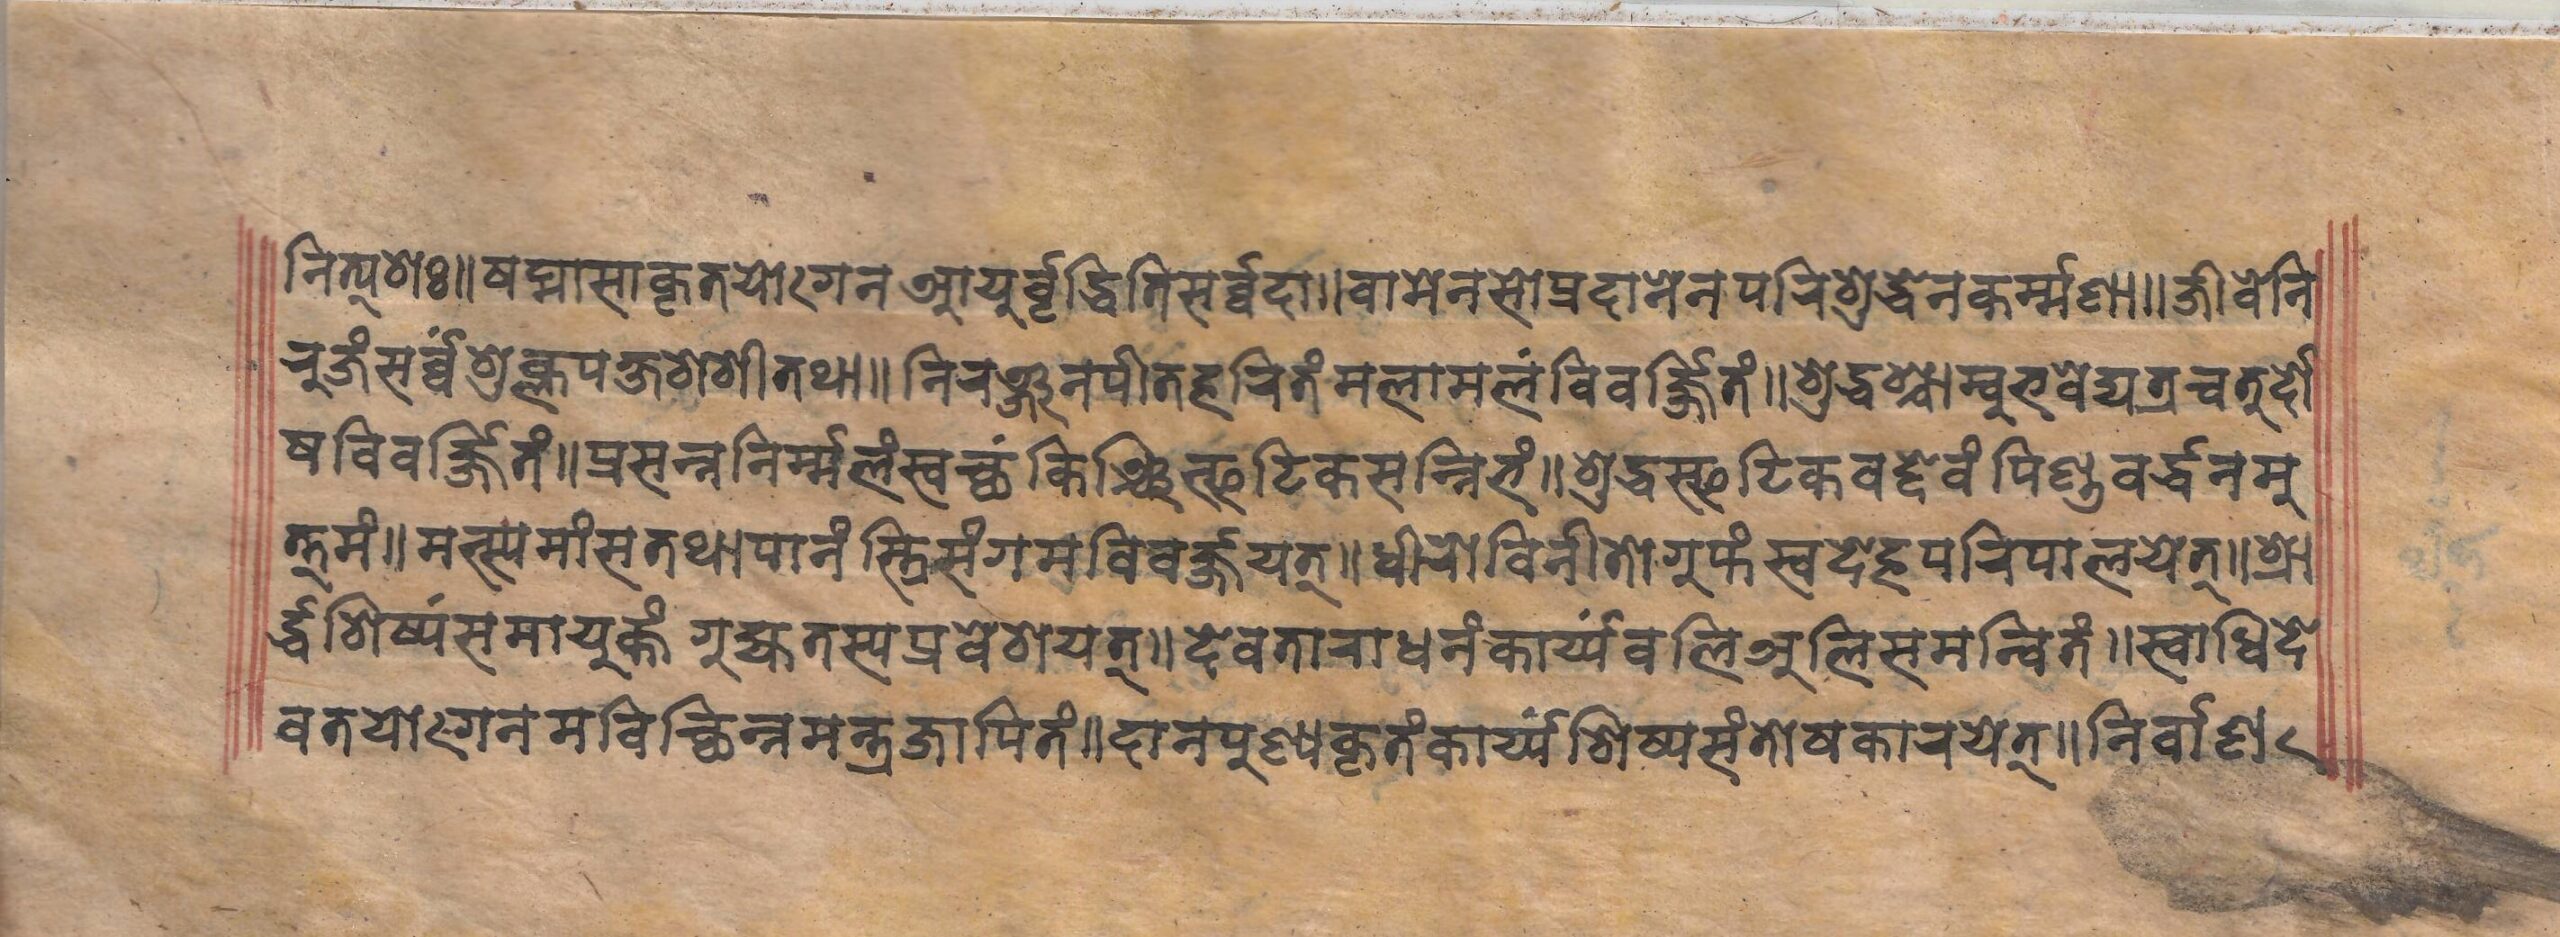 नित्यशः॥षण्मासाकृतयोगेनआयुर्व्वृद्धितिसर्व्वदा॥वामेनसोप्रदानेनपरिशुद्धेनकर्म्मणा॥जीवेनि
रुजंसर्व्वंशुक्लपक्षशेशीतथा॥निरञ्जनपीतहरितंमलामलंविवर्ज्जितं॥शुद्धश्चाम्बुभवेद्यत्रचतुर्दो
षविवर्ज्जितं॥प्रसन्ननिर्म्मलंस्वच्छंकिञ्चित्स्फटिकसन्निभं॥शुद्धस्फटिकवद्देवंपिण्डवर्द्धनमु
त्तमं॥मत्स्यमांसतथापानंस्त्रिसंगमविवर्ज्जयत्॥धीरोविनीतोगुप्तंस्वदेहपरिपालयेत्॥श्रा
र्द्धशिष्यंसमायुक्तंगुह्यतस्यप्रवेशयत्॥देवताराधनंकार्य्यंवलिअलिसमन्वितं॥स्वाधिदे
वतयोगेनमविच्छिन्नमन्त्रजापितं॥दानपुण्यकृतंकार्य्यंशिष्यसंतोषकारयेत्॥निर्वाण